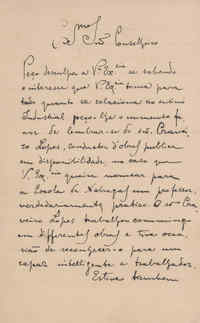 Exmo Snr Conselheiro
Peço desculpa a V. Excia se sabendo
o interesse que V. Excia toma para
tudo quanto se relaciona no ensino
Industrial peço-lhe o
de lembrar-se do snr.
Lopes, conductor d'obras publicas
em disponibilidade, no caso que
V. Excia queira nomear para
a Escola de um professor
verdadeiramente pratico. O snr
Lopes trabalhou commigo
em differentes obras e tive occa-
sião de reconhecer-o para um
rapaz intelligente e trabalhador.
Estive tambem